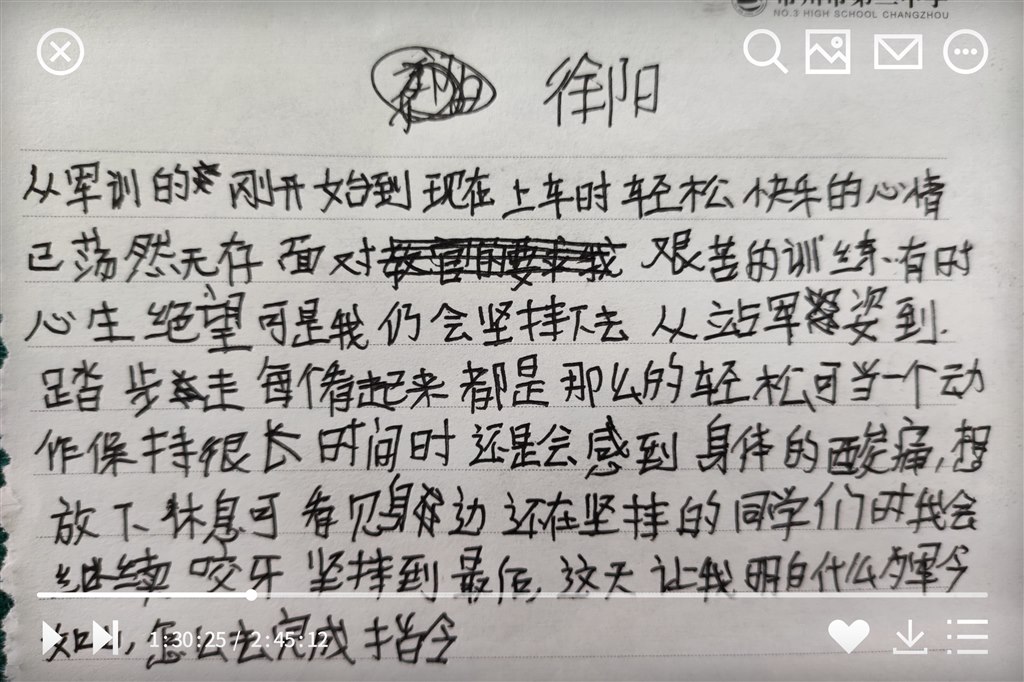 NO.3 HIGH SCHOOL CHANGZHOU
徐阳
从军训的刚开始到现在上车时轻松快乐的心情
已荡然无存面对艰苦的训练.有时
心生绝望可是我们会坚持下去从站军姿到
踏步走每个看起来都是那么的轻松可当一个动
作保持很长时间时还是会感到身体的酸痛,想
放下休息可看见身边还在坚持的同学们时我会
继续咬牙坚持到最后,这天让我明白什么为军令
如山,怎么去完成指令
1:30:25 / 2:45:12